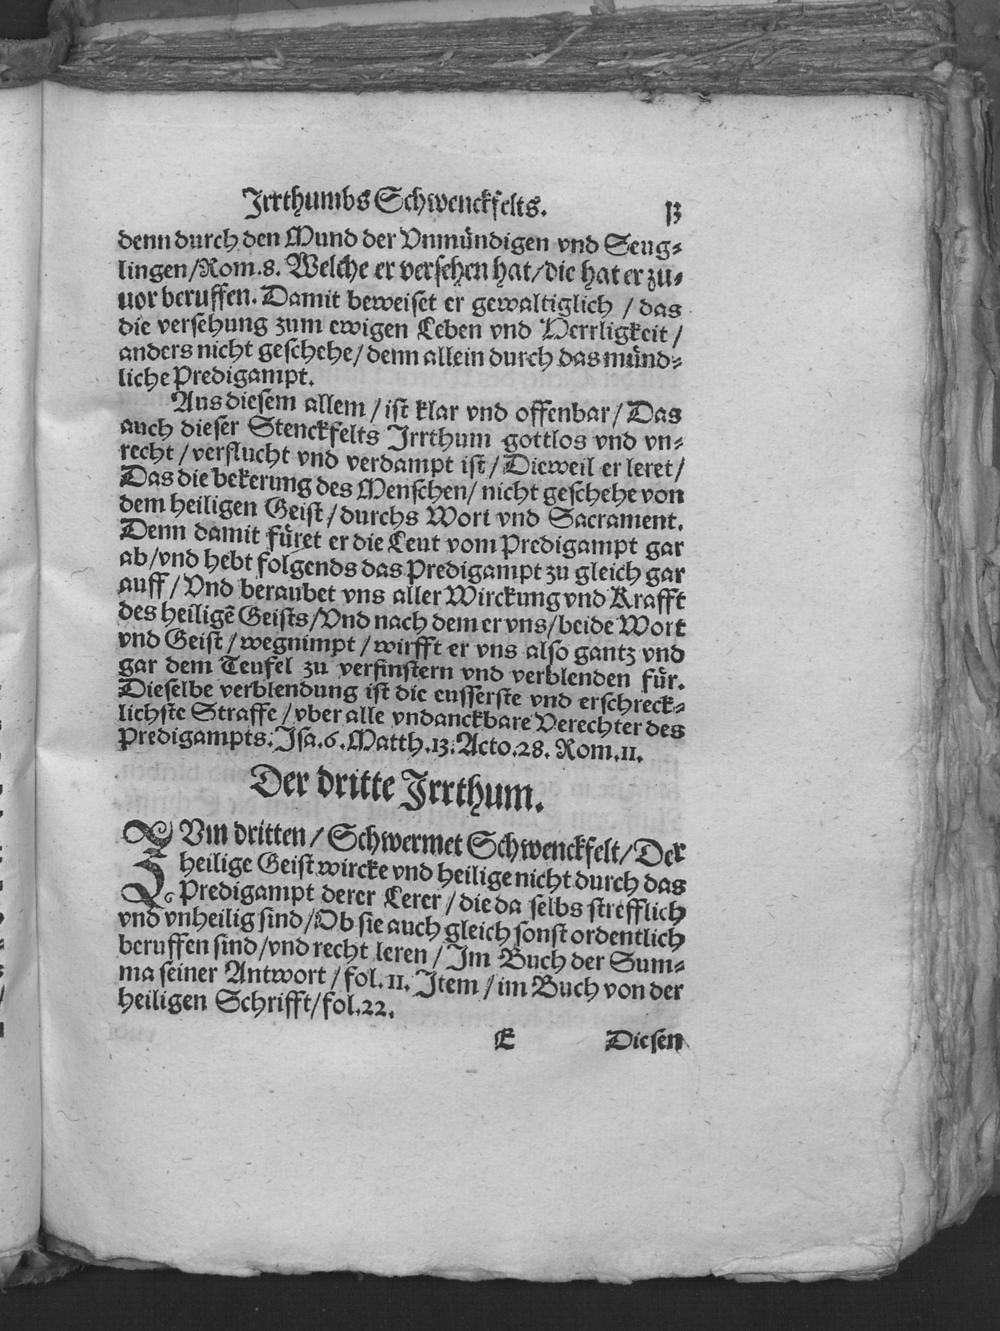 Irrthumbs Schwenckfelts. 13
denn durch den Mund der Vnmündigen vnd Seug-
lingen/Rom.8. Welche er versehen hat/die hat er zu-
uor beruffen. Damit beweiset er gewaltiglich / das
die versehung zum ewigen Leben vnd Herrligkeit /
anders nicht geschehe/ denn allein durch das münd-
liche Predigampt.
Aus diesem allem / ist klar vnd offenbar/ Das
auch dieser Stenckfelts Irrthum gottlos vnd vn-
recht / verflucht vnd verdampt ist / Dieweil er leret/
Das die bekerung des Menschen/ nicht geschehe von
dem heiligen Geist / durchs Wort vnd Sacrament.
Denn damit füret er die Leut vom Predigampt gar
ab/vnd hebt folgends das Predigampt zu gleich gar
auff / Vnd beraubet vns aller Wirckung vnd Krafft
des heiligẽ Geists/Vnd nach dem er vns/beide Wort
vnd Geist / wegnimpt / wirfft er vns also gantz vnd
gar dem Teufel zu verfinstern vnd verblenden für.
Dieselbe verblendung ist die eusserste vnd erschreck-
lichste Straffe / vber alle vndanckbare Verechter des
Predigampts. Isa.6. Matth.13. Acto.28. Rom.11.
Der dritte Irrthum.
ZVm dritten / Schwermet Schwenckfelt/ Der
heilige Geist wircke vnd heilige nicht durch das
Predigampt derer Lerer / die da selbs strefflich
vnd vnheilig sind/Ob sie auch gleich sonst ordentlich
beruffen sind/vnd recht leren / Im Buch der Sum-
ma seiner Antwort / fol. 11. Item / im Buch von der
heiligen Schrifft/fol.22.
E Diesen